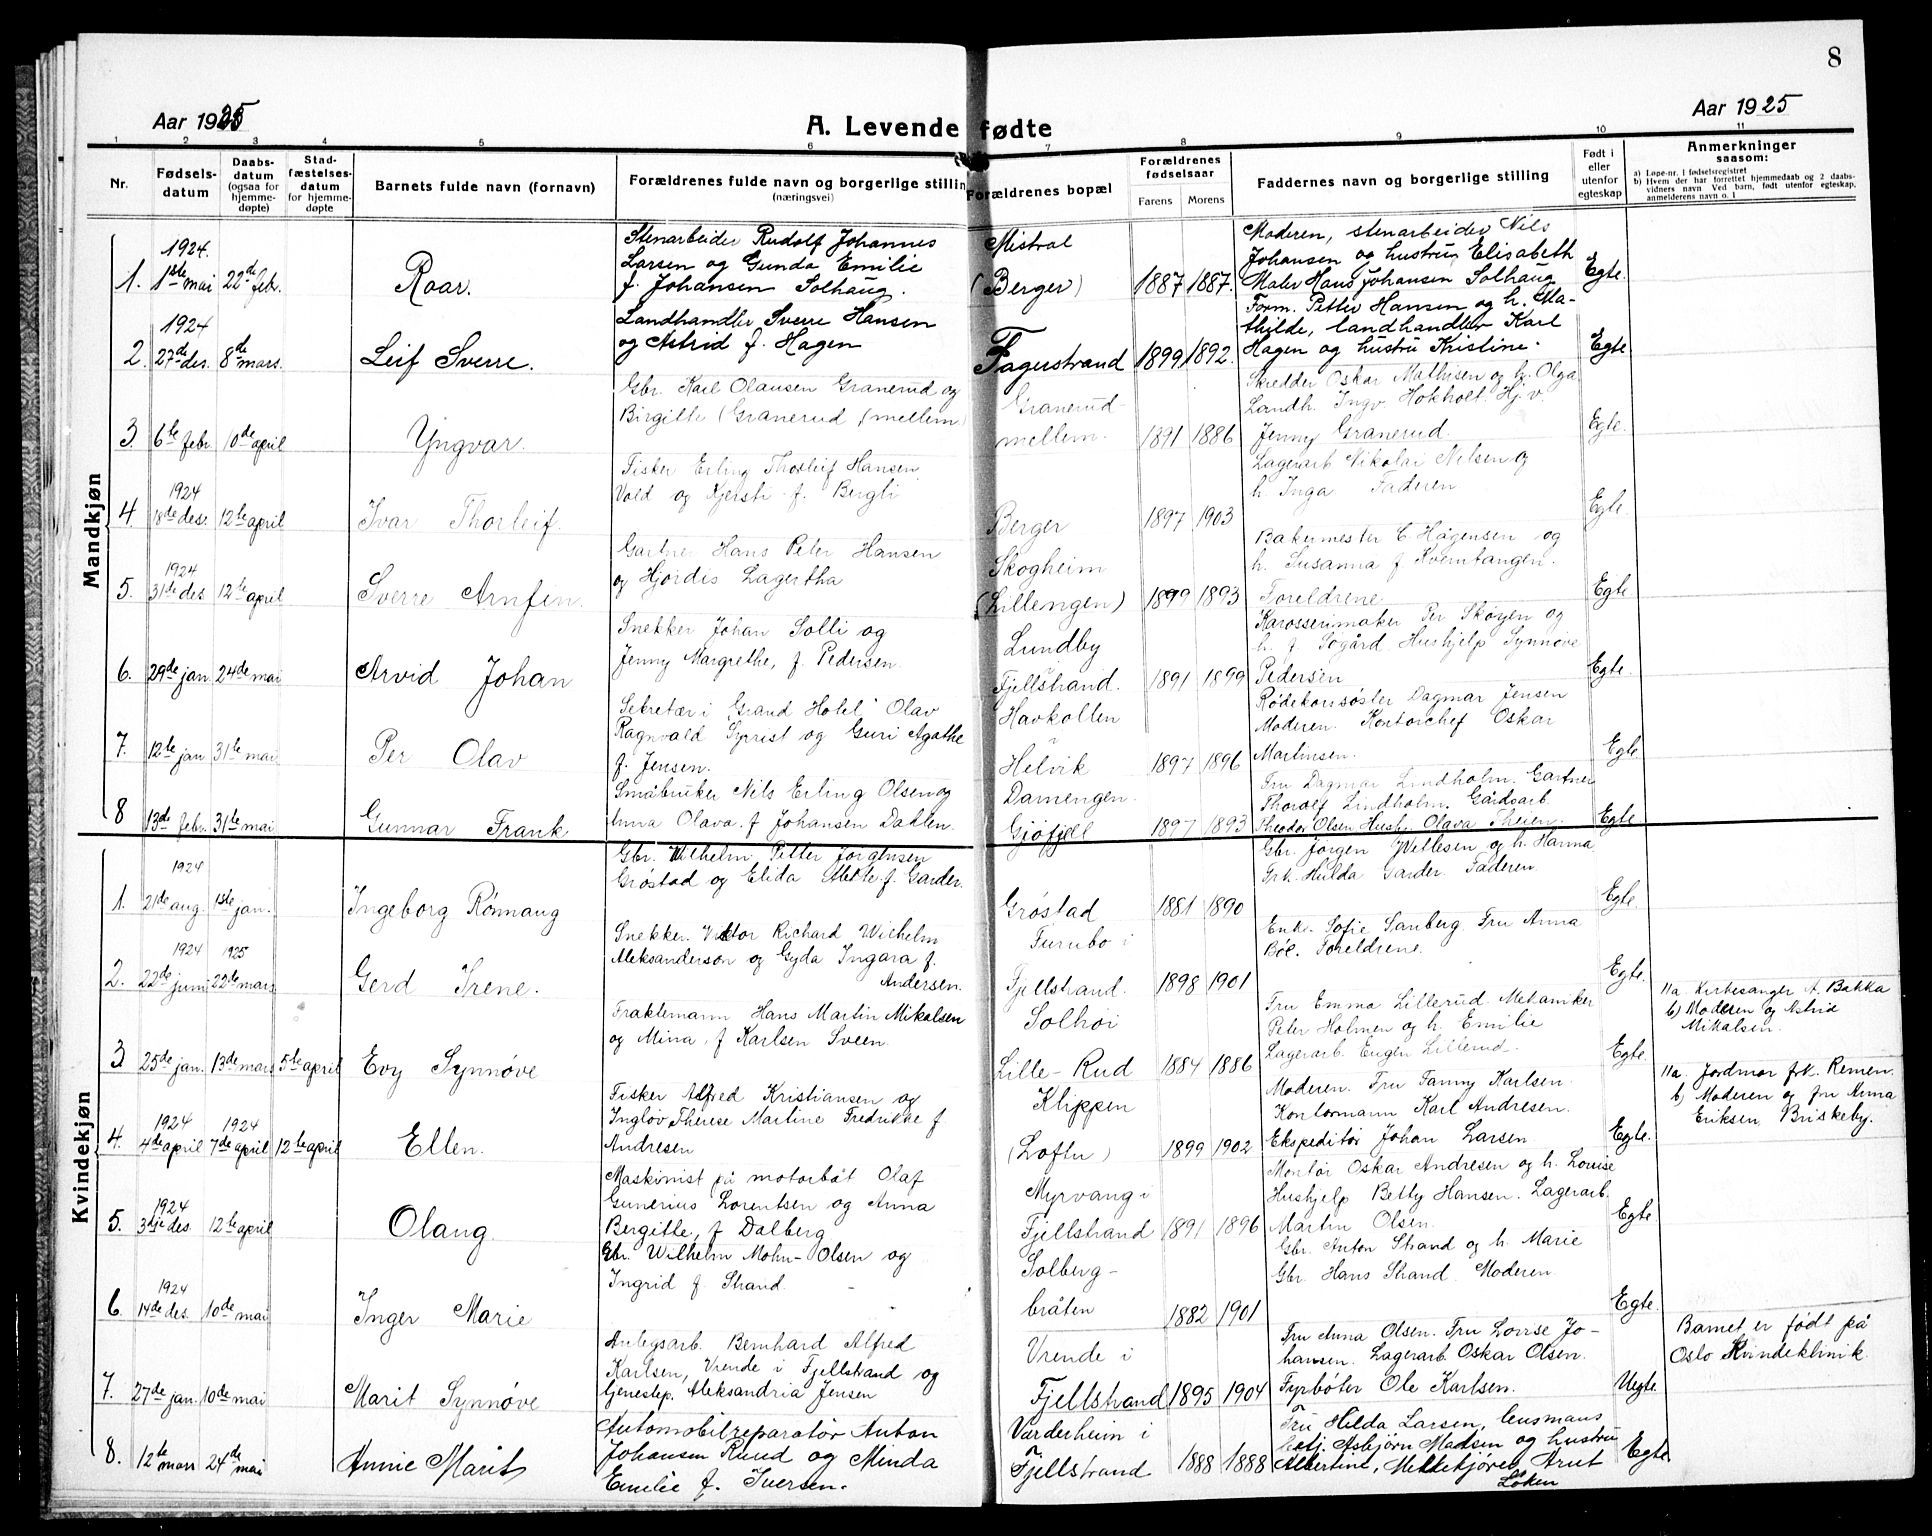 8
Aar 1925
A. Levende fødte
Aar 1925
1 2 3 4 5 6 7 8 9 10 11
Nr.
Fødsels-
datum
Daabs-
datum
(ogsaa for
hjemme-
døpte)
Stad-
fæstelses-
datum
for hjemme-
døpte
Barnets fulde navn (fornavn)
Forældrenes fulde navn og borgerlige stilling
(næringsvei)
Forældrenes bopæl
Forældrenes
fødselsaar
Farens Morens
Faddernes navn og borgerlige stilling
Født i
eller
utenfor
egteskap
Anmerkninger
saasom:
a) Løpe-nr. i fødselsregistret
b) Hvem der har forrettet hjemmedaab og 2 daabs-
vidners navn Ved barn, født utenfor egteskap,
anmelderens navn o. l
Mandkjøn
1. 1924. 1ste mai 22de febr. Roar.
Stenarbeider Rudolf Johannes
Larsen og Gunda Emilie
f. Johansen Solhaug.
Mistral
(Berger) 1887 1887.
Moderen, stenarbeider Nils
Johansen og hustru Elisabeth
Maler Hans Johansen Solhaug
Egte.
2. 1924 27de des. 8de mars. Leif Sverre.
Landhandler Sverre Hansen
og Astrid f. Hagen
Fagerstrand 1899 1892.
Form. Petter Hansen og h. Ma-
thilde, landhandler Karl
Hagen og hustru Kristine.
Egte
3. 6te febr. 10de april Yngvar.
Gbr. Karl Olausen Granerud og
Birgitte (Granerud mellem)
Granerud-
mellem. 1891 1886
Skredder Oskar Mathisen og h. Olga
Landh. Ingv Hokholt. Hj.v.
Jenny Granerud.
Egte.
4. 1924 18de des. 12te april Ivar Thorleif.
Fisker Erling Thorleif Hansen
Vold og Kjersti f. Bergli
Berger 1897 1903
Lagerarb Nikolai Nilsen og
h. Inga Faderen
Egte
5. 1924 31te des 12te april Sverre Arnfin.
Gartner Hans Peter Hansen
og Hjørdis Lagertha
Skogheim
(Lillengen) 1899 1893
Bakermester C Hågensen og
h. Susanna f Kverntangen.
Foreldrene
Egte
6. 29de jan 24de mai Arvid Johan
Snekker Johan Solli og
Jenny Margrethe, f. Pedersen.
Lundby
Fjellstrand. 1891 1899
Karosserimaker Per Skøyen og
h. f. Søgård, Hushjelp Synnøve
Pedersen
Egte.
7. 12te jan 31te mai Per Olav
Sekretær i "Grand Hotel" Olav
Ragnvald Syrrist og Guri Agathe
f. Jensen.
Havkollen
Helvik 1897 1896
Rødekorssøster Dagmar Jensen
Moderen. Kontorchef Oskar
Martinsen.
Egte
8 13de febr. 31te mai Gunnar Frank
Småbruker Nils Erling Olsen og
Anna Olava. f Johansen Dahlen.
Damengen.
Gjøfjell 1897 1893
Fru Dagmar Lindholm. Gartner
Thorolf Lindholm. Gårdsarb.
Theodor Olsen Hush. Olava Theien.
Egte.
Kvindekjøn
1. 1924 21de aug. 1ste jan. Ingeborg Rønnaug
Gbr. Wilhelm Petter Jørgensen
Grøstad og Elida Mette f. Garder.
Grøstad 1881 1890
Gbr. Jørgen Willesen og h. Hanna
Frk. Hulda Garder. Faderen.
Egte
2. 1924 22de juni 1925 22de mars Gerd Irene.
Snekker. Viktor Richard Wilhelm
Aleksanderson og Gyda Ingara f.
Andersen.
Furubo i
Fjellstrand. 1898 1901
Enk. Sofie Sanberg. Fru Anna
Bøe. Foreldrene.
Egte.
3. 25de jan. 13de mars 5te april Evy Synnøve
Fraktemann Hans Martin Mikalsen
og Mina f Karlsen Sveen.
Solhøi
Lille-Rud 1884 1886
Fru Emma Lillerud Mekaniker
Peter Holmen og h. Emilie
Lagerarb. Eugen Lillerud.
Egte
11a. Kirkesanger A. Bakka
b) Moderen og Astrid
Mikalsen.
4. 1924 4de april 1924 7de april 12te april Ellen.
Fisker Alfred Kristiansen og
Inglov Therese Martine Fredrikke f.
Andresen
Klippen
(Loftu) 1899 1902
Moderen. Fru Fanny Karlsen.
Kontormann Karl Andresen.
Ekspeditør Johan Larsen
Egte.
11a. Jordmor frk. Remen.
b) Moderen og fru Anna
Eriksen Briskeby.
5. 1924 3dje des. 12te april Olaug.
Maskinist på motorbåt Olaf
Gunerius Lorentsen og Anna
Bergitte, f Dalberg
Myrvang i
Fjellstrand 1891 1896
Montør Oskar Andresen og h. Louise
Hushjelp Betty Hansen. Lagerarb.
Martin Olsen.
Egte.
6. 1924 14de des. 10de mai Inger Marie
Gbr. Wilhelm Mohn-Olsen og
Ingrid f. Strand.
Solberg-
bråten 1882 1901
Gbr. Anton Strand og h. Marie
Gbr. Hans Strand. Moderen.
Egte.
7. 27de jan. 10de mai Marit Synnøve
Anlegsarb. Bernhard Alfred
Karlsen, Vrende i Fjellstrand og
tjenestep. Aleksandria Jensen
Vrende i
Fjellstrand 1895 1904
Fru Anna Olsen. Fru Lovise Jo-
hansen. Lagerarb. Oskar Olsen.
Fyrbøter Ole Karlsen.
Uegte.
Barnet er født på
Oslo Kvindeklinik.
8. 12te mars 24de mai Annie Marit
Automobilreparatør Anton
Johansen Ruud og Minda
Emilie f. Iversen.
Varderheim i
Fjellstrand 1888 1888
Fru Hilda Larsen,
Asbjørn Madsen og hustru
Albertine, Melkekjører Arut
Løken
Egte